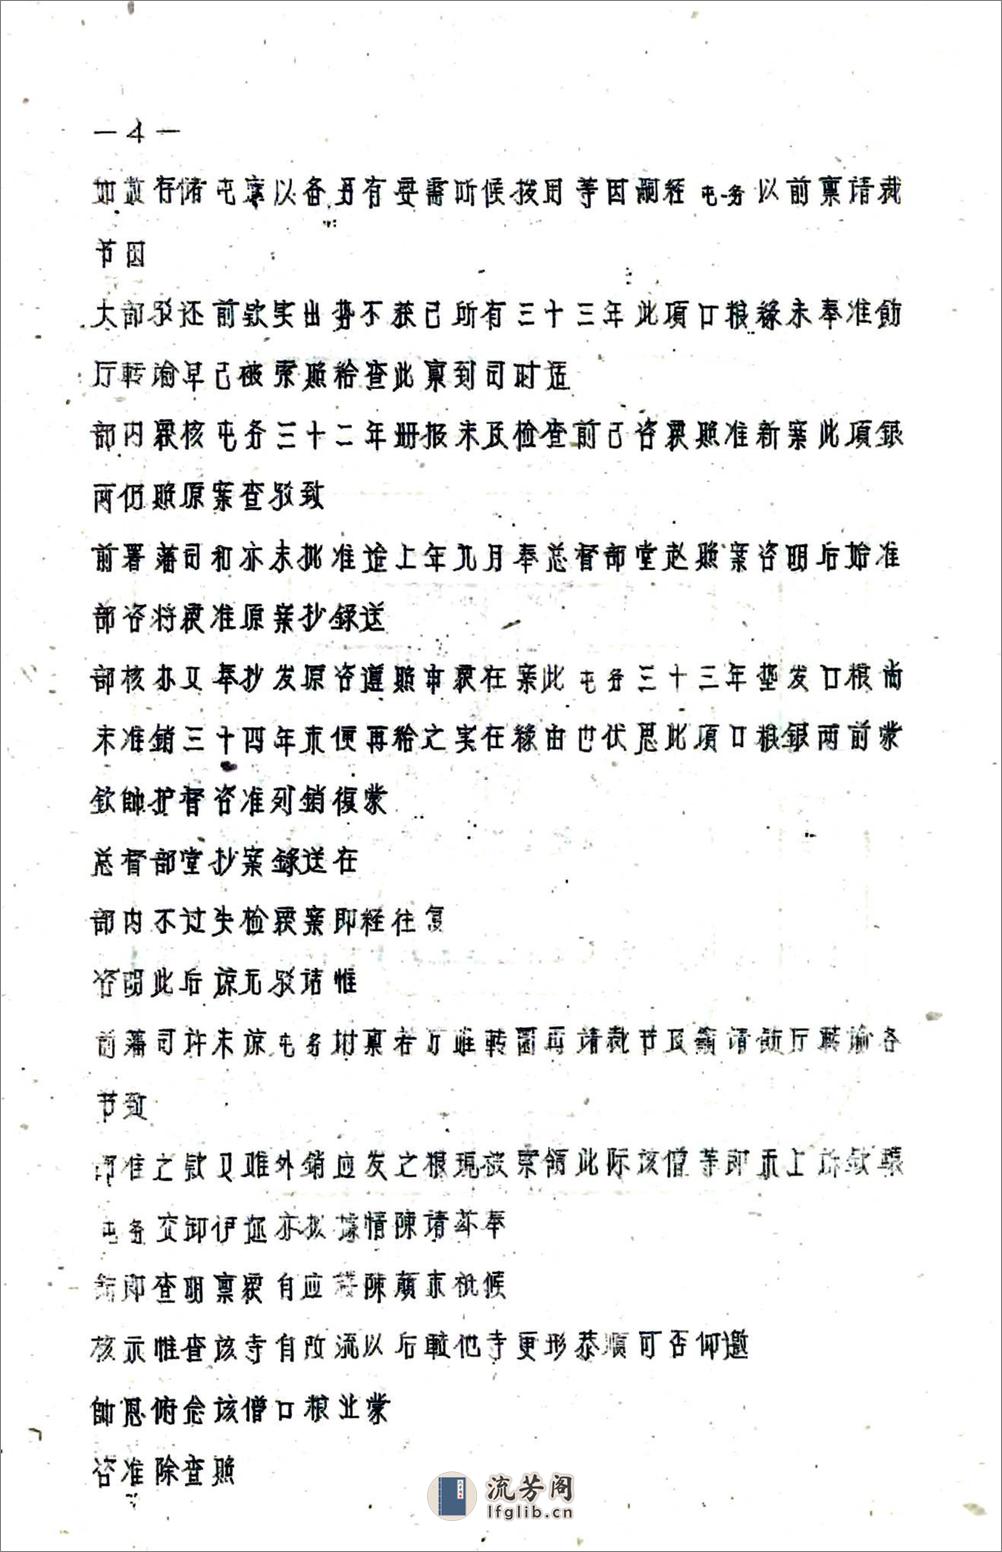 —4—
如数存储屯库以备另有要需听候拨用等因嗣经屯务以前禀请裁
节因
大部驳还前欵实出势不获已所有三十三年此項口粮緣未奉准飭
厅转谕早已被索照给查此禀到司时适
部内覈核屯务三十二年册报未及检查前已咨覈照准新案此項銀
两仍照原案查驳致
前署藩司和亦未批准迨上年九月奉总督部堂赵照案咨明后始准
部咨将覈准原案抄録送
部核办又奉抄发原咨遵照申覈在案此屯务三十三年垫发口粮尚
未准銷三十四年未便再给之实在緣由也伏思此項口粮銀两前蒙
欽帥护督咨准列銷復蒙
总督部堂抄案録送在
部内不过失检覈案即经往复
咨明此后谅无驳诘惟
前藩司许未谅屯务坿禀若万难转圜再请裁节及籲请飭厅转諭各
节致
部准之欵又难外銷应发之粮现被索领此际该僧等即禀上诉欽辕
屯务交卸伊迩亦拟據情陳请茲奉
飭即查明禀覈自应 陳顛末祇候
核示惟查该寺自改流以后較他寺更形恭順可否仰邀
帥恩俯念该僧口粮业蒙
咨准除查照
流芳阁
lfglib.cn